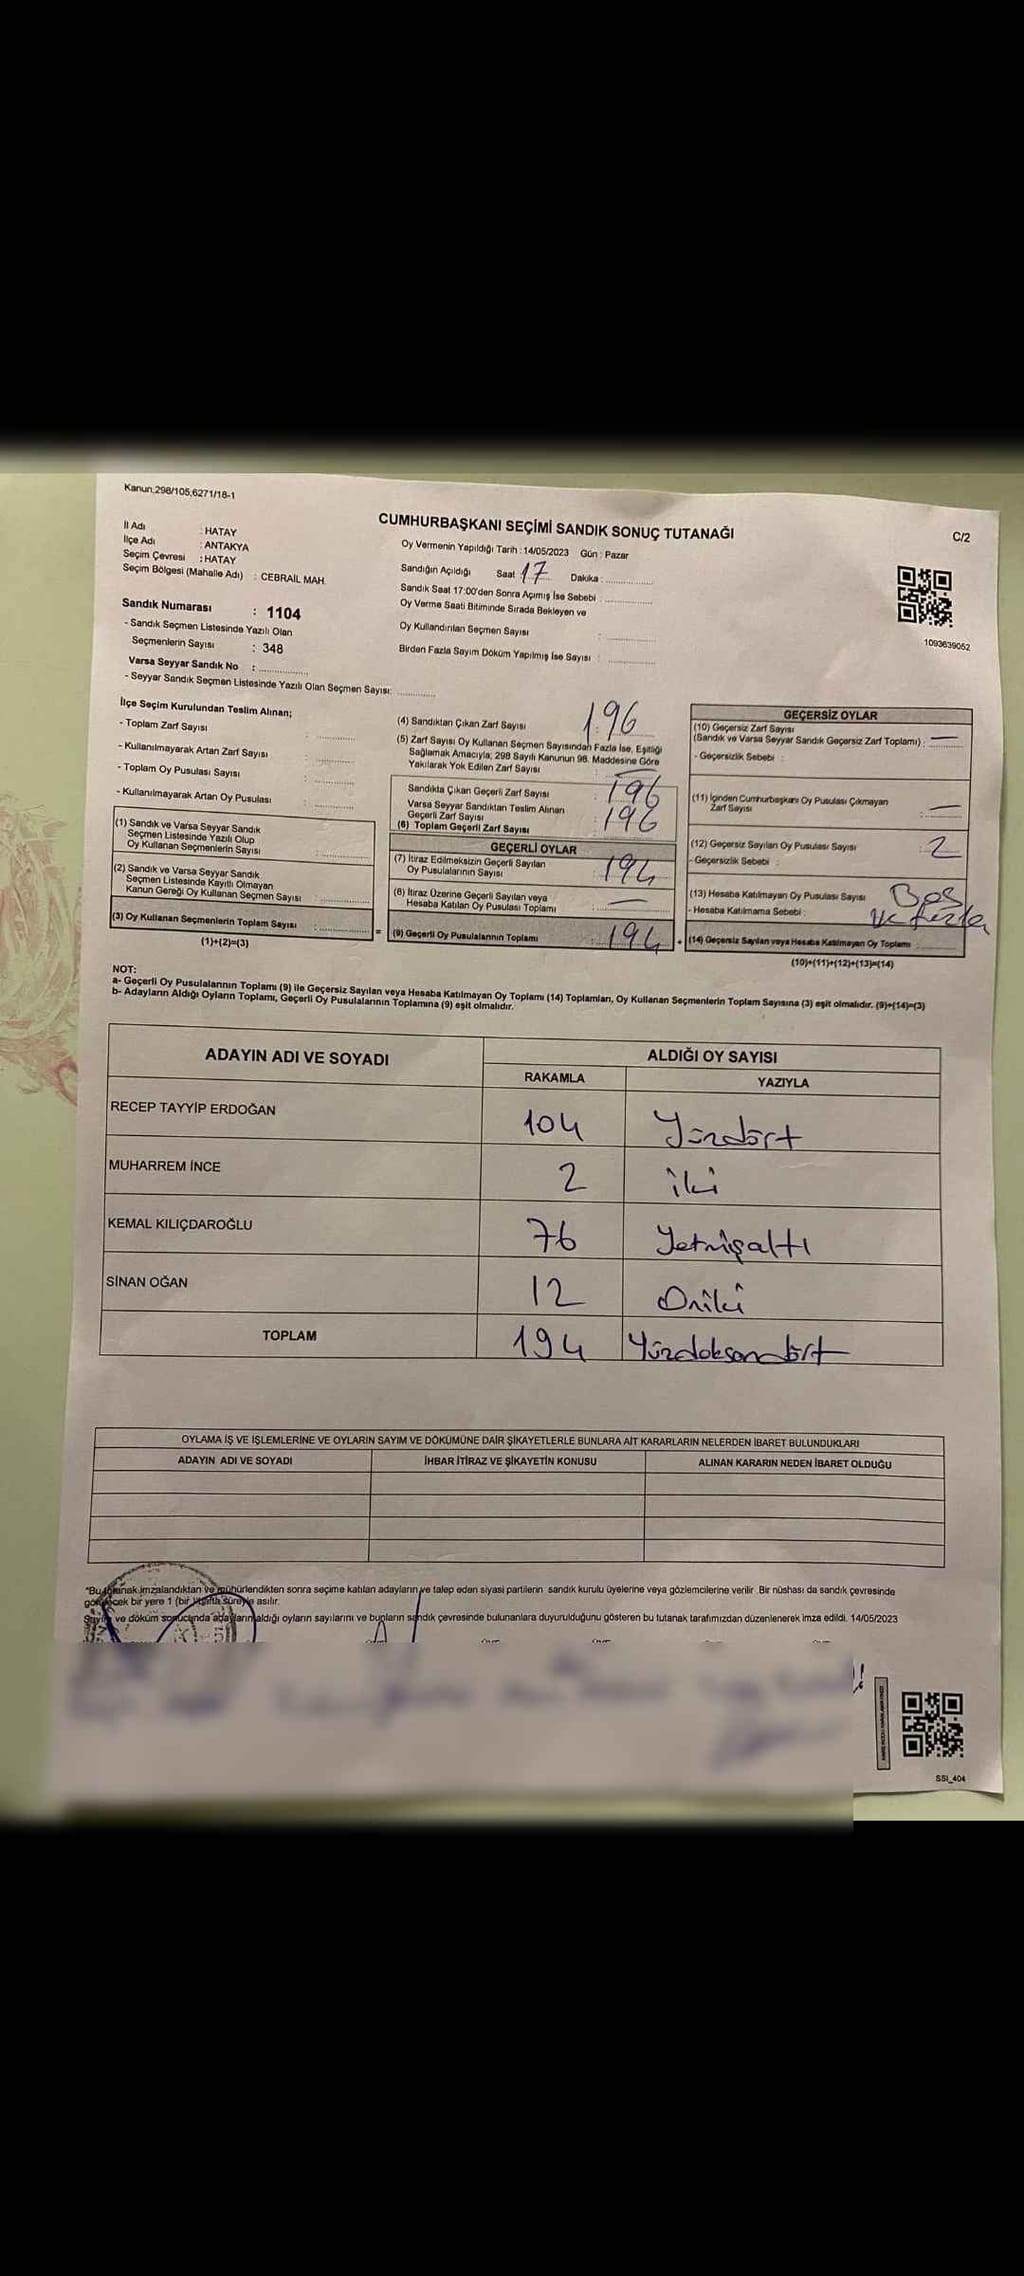 Kanun,298/105,6271/18-1
CUMHURBAŞKANI SEÇİMİ SANDIK SONUÇ TUTANAĞI
C/2
İl Adı : HATAY
İlçe Adı : ANTAKYA
Seçim Çevresi : HATAY
Seçim Bölgesi (Mahalle Adı) : CEBRAİL MAH.
Oy Vermenin Yapıldığı Tarih : 14/05/2023 Gün : Pazar
Sandığın Açıldığı Saat 17 Dakika :
Sandık Saat 17:00'den Sonra Açımış İse Sebebi :
Oy Verme Saati Bitiminde Sırada Bekleyen ve
Oy Kullandırılan Seçmen Sayısı :
Birden Fazla Sayım Döküm Yapılmış İse Sayısı :
1093639052
Sandık Numarası : 1104
- Sandık Seçmen Listesinde Yazılı Olan
Seçmenlerin Sayısı : 348
Varsa Seyyar Sandık No :
- Seyyar Sandık Seçmen Listesinde Yazılı Olan Seçmen Sayısı:
İlçe Seçim Kurulundan Teslim Alınan;
- Toplam Zarf Sayısı :
- Kullanılmayarak Artan Zarf Sayısı :
- Toplam Oy Pusulası Sayısı :
- Kullanılmayarak Artan Oy Pusulası :
(1) Sandık ve Varsa Seyyar Sandık
Seçmen Listesinde Yazılı Olup
Oy Kullanan Seçmenlerin Sayısı :
(2) Sandık ve Varsa Seyyar Sandık
Seçmen Listesinde Kayıtlı Olmayan
Kanun Gereği Oy Kullanan Seçmen Sayısı :
(3) Oy Kullanan Seçmenlerin Toplam Sayısı :
(1)+(2)=(3)
(4) Sandıktan Çıkan Zarf Sayısı : 196
(5) Zarf Sayısı Oy Kullanan Seçmen Sayısından Fazla İse, Eşitliği
Sağlamak Amacıyla, 298 Sayılı Kanunun 98. Maddesine Göre
Yakılarak Yok Edilen Zarf Sayısı : —
Sandıkta Çıkan Geçerli Zarf Sayısı : 196
Varsa Seyyar Sandıktan Teslim Alınan
Geçerli Zarf Sayısı
(6) Toplam Geçerli Zarf Sayısı : 196
GEÇERLİ OYLAR
(7) İtiraz Edilmeksizin Geçerli Sayılan
Oy Pusulalarının Sayısı : 194
(8) İtiraz Üzerine Geçerli Sayılan veya
Hesaba Katılan Oy Pusulası Toplamı : —
= (9) Geçerli Oy Pusulalarının Toplamı : 194
GEÇERSİZ OYLAR
(10) Geçersiz Zarf Sayısı
(Sandık ve Varsa Seyyar Sandık Geçersiz Zarf Toplamı) : —
- Geçersizlik Sebebi :
(11) İçinden Cumhurbaşkanı Oy Pusulası Çıkmayan
Zarf Sayısı : —
(12) Geçersiz Sayılan Oy Pusulası Sayısı : 2
- Geçersizlik Sebebi :
(13) Hesaba Katılmayan Oy Pusulası Sayısı Boş
- Hesaba Katılmama Sebebi : ve fazla
+ (14) Geçersiz Sayılan veya Hesaba Katılmayan Oy Toplamı
(10)+(11)+(12)+(13)=(14)
NOT:
a- Geçerli Oy Pusulalarının Toplamı (9) ile Geçersiz Sayılan veya Hesaba Katılmayan Oy Toplamı (14) Toplamları, Oy Kullanan Seçmenlerin Toplam Sayısına (3) eşit olmalıdır. (9)+(14)=(3)
b- Adayların Aldığı Oyların Toplamı, Geçerli Oy Pusulalarının Toplamına (9) eşit olmalıdır.
ADAYIN ADI VE SOYADI ALDIĞI OY SAYISI
RAKAMLA YAZIYLA
RECEP TAYYİP ERDOĞAN 104 Yüzdört
MUHARREM İNCE 2 iki
KEMAL KILIÇDAROĞLU 76 Yetmişaltı
SİNAN OĞAN 12 Oniki
TOPLAM 194 Yüzdoksandört
OYLAMA İŞ VE İŞLEMLERİNE VE OYLARIN SAYIM VE DÖKÜMÜNE DAİR ŞİKAYETLERLE BUNLARA AİT KARARLARIN NELERDEN İBARET BULUNDUKLARI
ADAYIN ADI VE SOYADI İHBAR İTİRAZ VE ŞİKAYETİN KONUSU ALINAN KARARIN NEDEN İBARET OLDUĞU
"Bu tutanak imzalandıktan ve mühürlendikten sonra seçime katılan adayların ve talep eden siyasi partilerin sandık kurulu üyelerine veya gözlemcilerine verilir .Bir nüshası da sandık çevresinde
görülecek bir yere 1 (bir) hafta süreyle asılır.
Sayım ve döküm sonucunda adayların aldığı oyların sayılarını ve bunların sandık çevresinde bulunanlara duyurulduğunu gösteren bu tutanak tarafımızdan düzenlenerek imza edildi. 14/05/2023
SSI_404